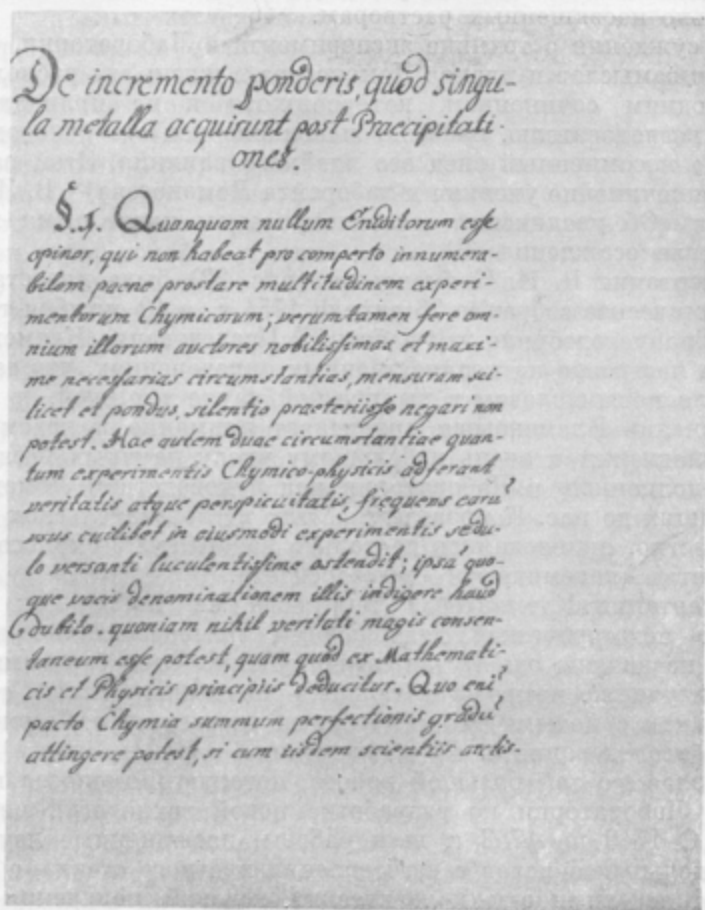 De incremento ponderis quod singu-
la metalla acquirunt post Praecipitati-
ones.
§. 1. Quanquam nullum Eruditorum esse
opinor, qui non habeat pro comperto innumera-
bilem paene prostare multitudinem experi-
mentorum Chymicorum; verumtamen fere om-
nium illorum auctores nobilissimas et maxi-
me necessarias circumstantias, mensuram sci-
licet et pondus, silentio praeteriisse negari non
potest. Hae autem duae circumstantiae quan-
tum experimentis Chymico-physicis adferant
veritatis atque perspicuitatis, frequens
cuilibet in eiusmodi experimentis sedu-
lo versanti luculentissime ostendit; ipsa quo-
que vocis denominationem illis indigere haud
dubito. quoniam nihil veritati magis consen-
taneum esse potest, quam quod ex Mathemati-
cis et Physicis principiis deducitur. Quo eni
pacto Chymia summum perfectionis gradu
attingere potest, si cum iisdem scientiis arctis-